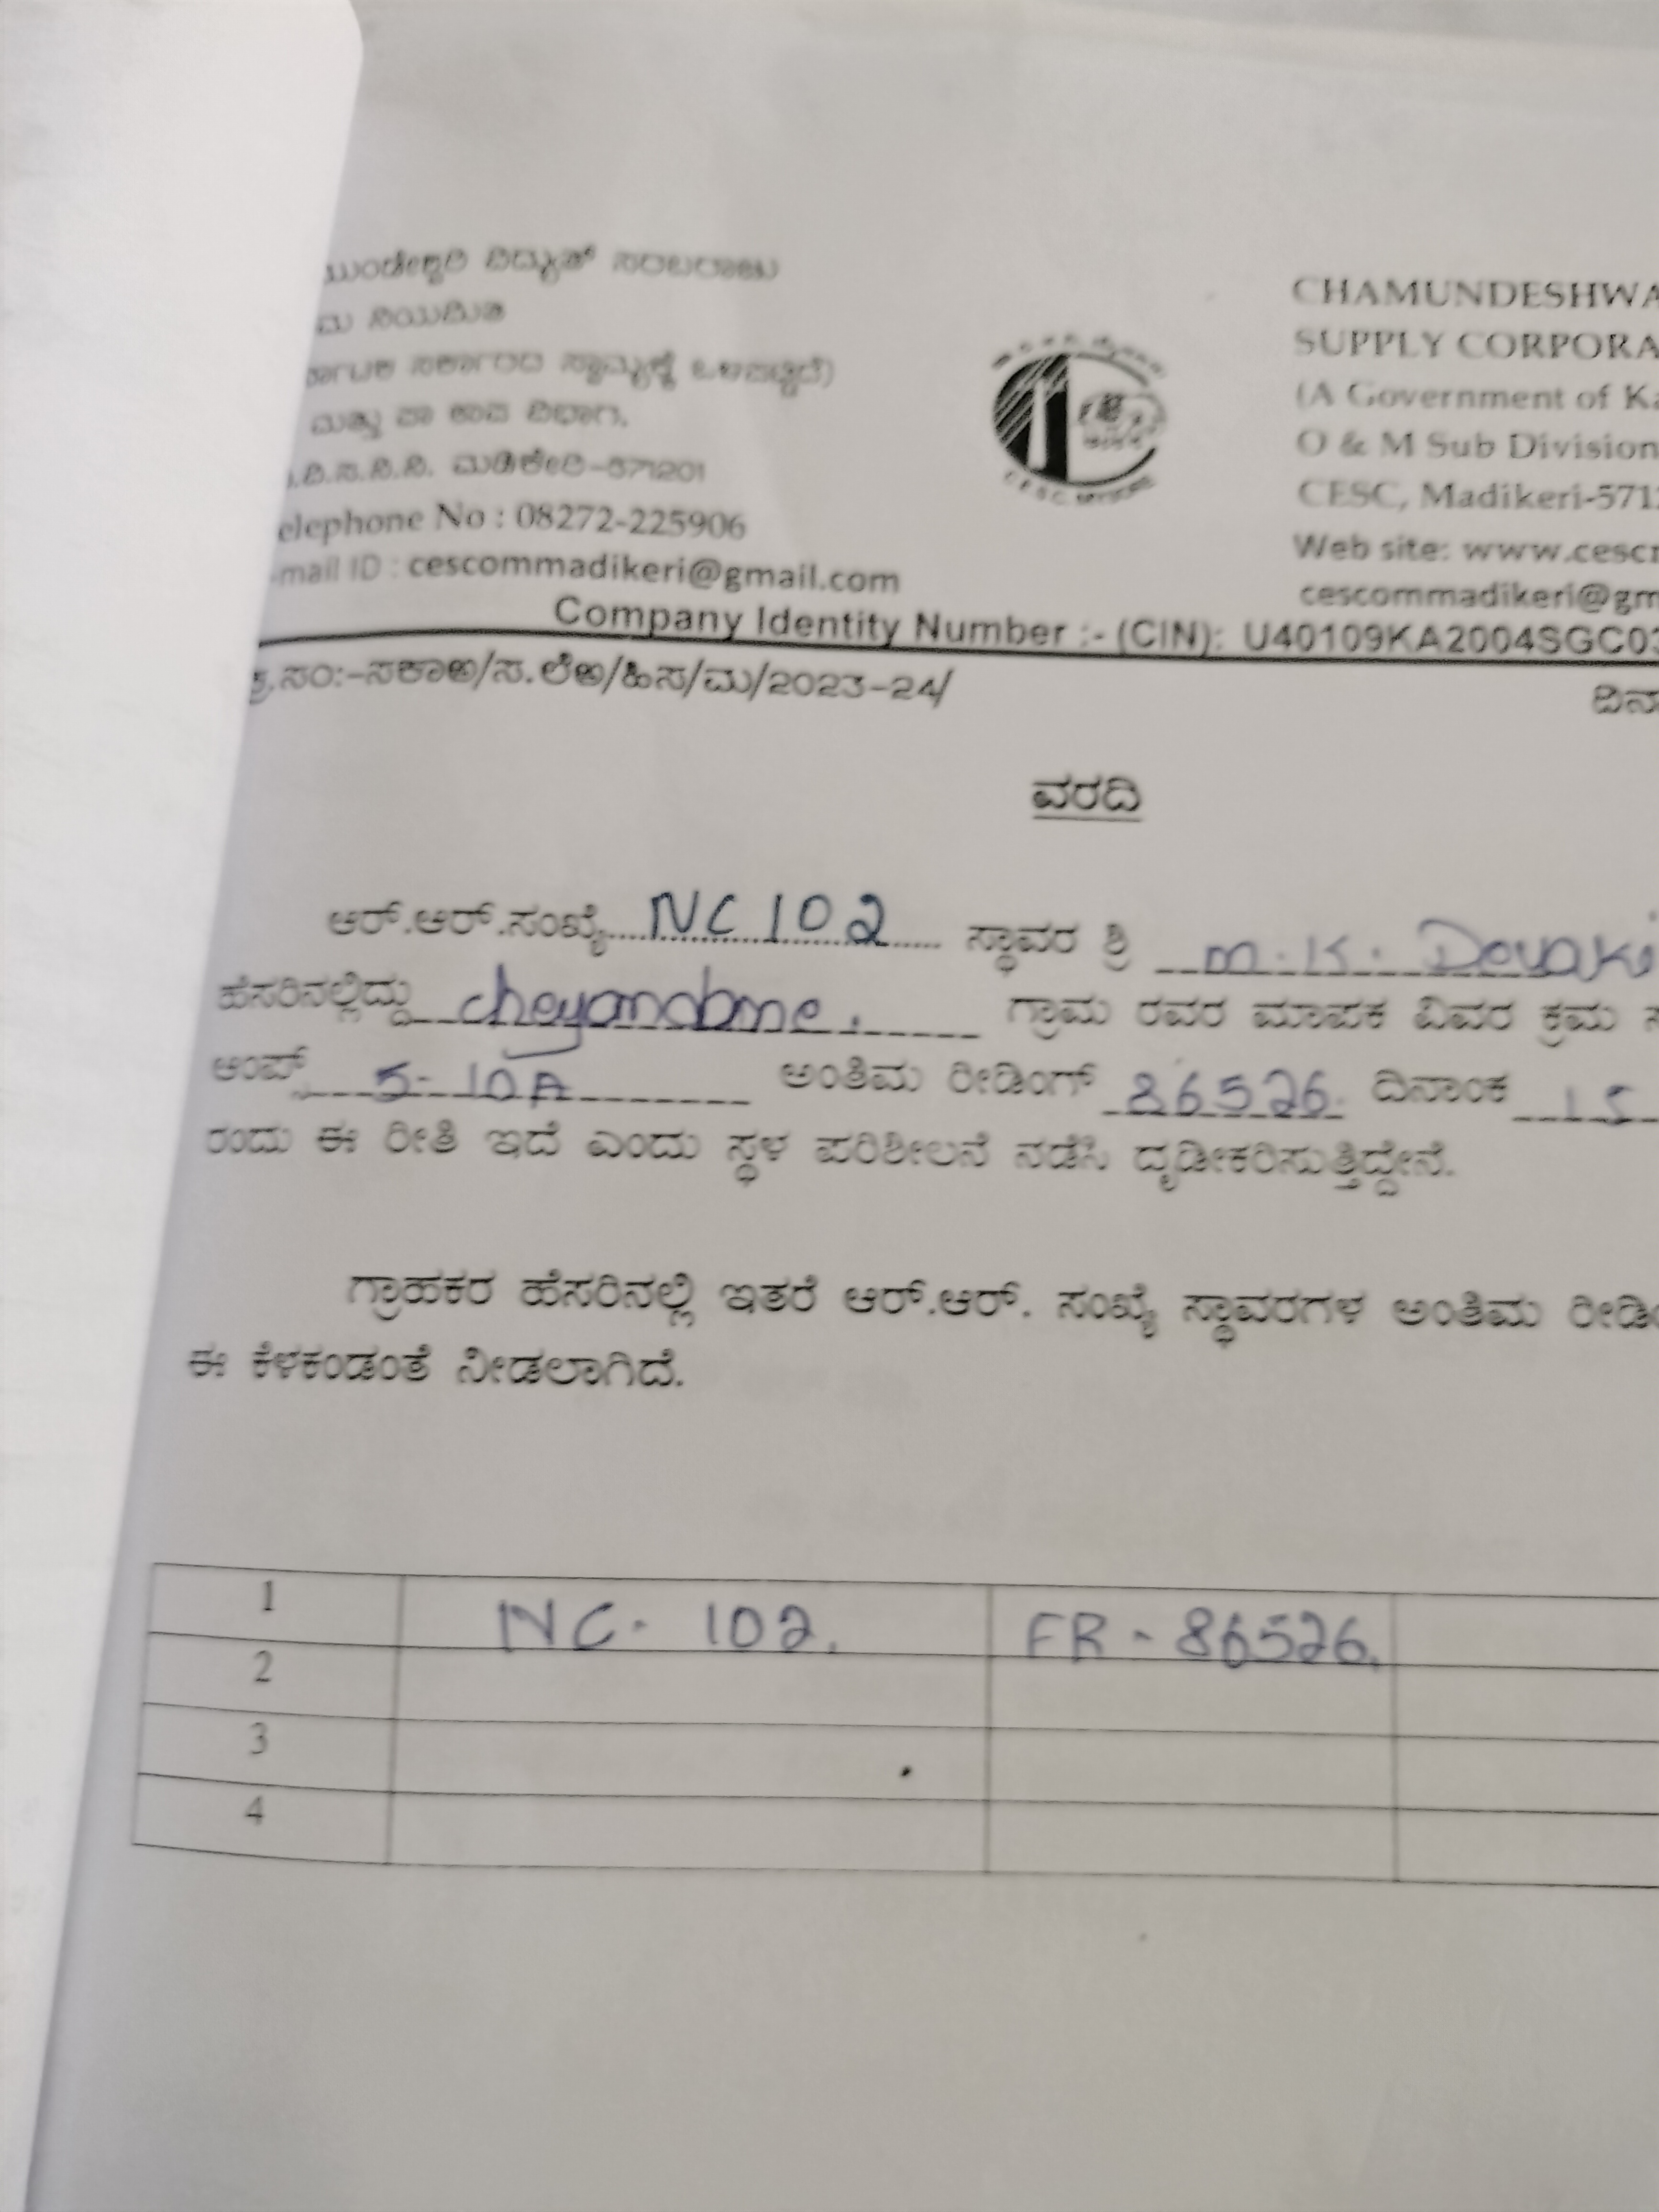 ಮುಂಡೇಶ್ವರಿ ವಿದ್ಯುತ್ ಸರಬರಾಜು
ಮ ನಿಯಮಿತ
ಸರ್ಕಾರದ ಸ್ವಾಮ್ಯಕ್ಕೆ ಒಳಪಟ್ಟಿದೆ)
ಮತ್ತು ಪಾ ಉಪ ವಿಭಾಗ,
.ವಿ.ಸ.ನಿ.ನಿ. ಮಡಿಕೇರಿ-571201
elephone No : 08272-225906
-mail ID : cescommadikeri@gmail.com
CESC, MYSORE
CHAMUNDESHWA
SUPPLY CORPORA
(A Government of Ka
O & M Sub Division
CESC, Madikeri-571
Web site: www.cesc
cescommadikeri@gm
Company Identity Number :- (CIN): U40109KA2004SGC03
ಕ್ರ.ಸಂ:-ಸಕಾಅ/ಸ.ಲೆಅ/ಹಿಸ/ಮ/2023-24/ ದಿನಾ
ವರದಿ
ಆರ್.ಆರ್.ಸಂಖ್ಯೆ NC 102 ಸ್ಥಾವರ ಶ್ರಿ M. K. Devaki
ಹೆಸರಿನಲ್ಲಿದ್ದು ಗ್ರಾಮ ರವರ ಮಾಪಕ ವಿವರ ಕ್ರಮ ಸ
ಆಂಪ್ಸ್ 5-10A ಅಂತಿಮ ರೀಡಿಂಗ್ 86526. ದಿನಾಂಕ 15
ರಂದು ಈ ರೀತಿ ಇದೆ ಎಂದು ಸ್ಥಳ ಪರಿಶೀಲನೆ ನಡೆಸಿ ದೃಡೀಕರಿಸುತ್ತಿದ್ದೇನೆ.
ಗ್ರಾಹಕರ ಹೆಸರಿನಲ್ಲಿ ಇತರೆ ಆರ್.ಆರ್. ಸಂಖ್ಯೆ ಸ್ಥಾವರಗಳ ಅಂತಿಮ ರೀಡಿಂ
ಈ ಕೆಳಕಂಡಂತೆ ನೀಡಲಾಗಿದೆ.
1 NC- 102. FR - 86526.
2
3
4